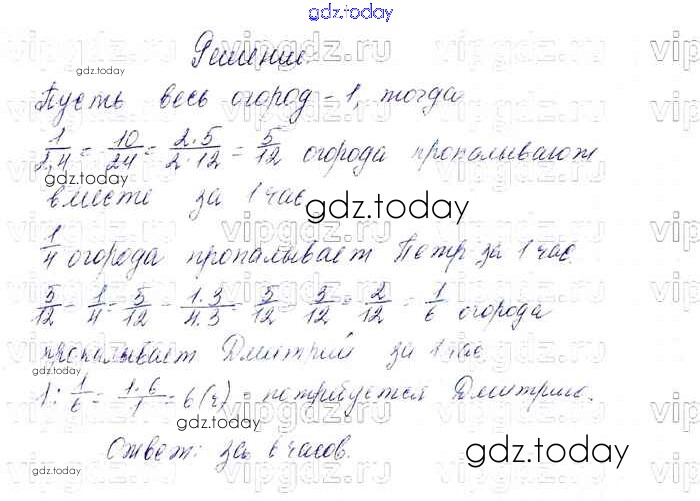 gdz.today
Решение.
Пусть весь огород = 1, тогда
1/2,4 = 10/24 = 2·5/2·12 = 5/12 огорода пропалывают
вместе за 1 час
1/4 огорода пропалывает Петр за 1 час
5/12 - 1/4 = 5/12 - 1·3/4·3 = 5/12 - 3/12 = 2/12 = 1/6 огорода
пропалывает Дмитрий за 1 час
1 : 1/6 = 1·6/1 = 6 (ч) - потребуется Дмитрию.
Ответ: за 6 часов.
gdz.today
gdz.today
gdz.today
gdz.today
gdz.today
gdz.today
vipgdz.ru